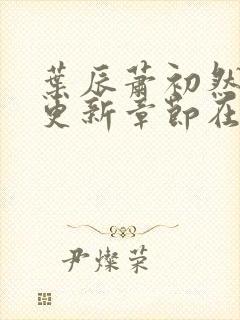 葉辰蕭初然
更新章節在
尹燦荣